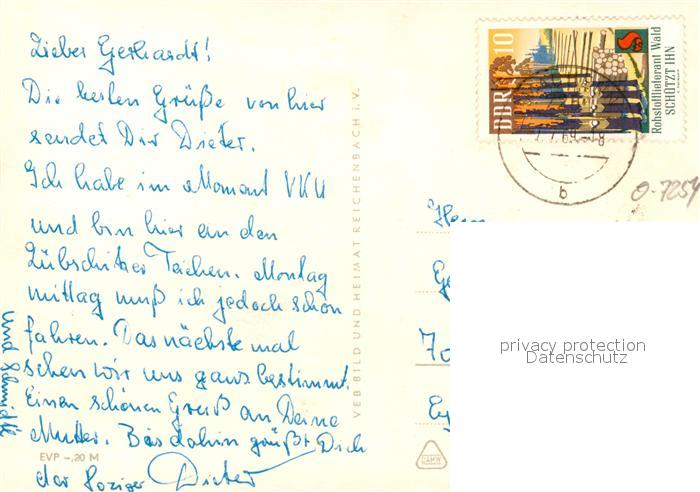 Lieber Gerhardt!
Die besten Grüße von hier
sendet Dir Dieter.
Ich habe im Moment VKU
und bin hier an den
Lübschützer Teichen. Montag
mittag muß ich jedoch schon
fahren. Das nächste mal
sehen wir uns ganz bestimmt.
Einen schönen Gruß an Deine
Mutter. Bis dahin grüßt Dich
der Dieter
und Schmidti
EVP -,20 M
VEB BILD UND HEIMAT REICHENBACH i. V.
DDR 10
Rohstofflieferant Wald
SCHÜTZT IHN
b
0-7254
Herrn
Ge
70
privacy protection
Datenschutz